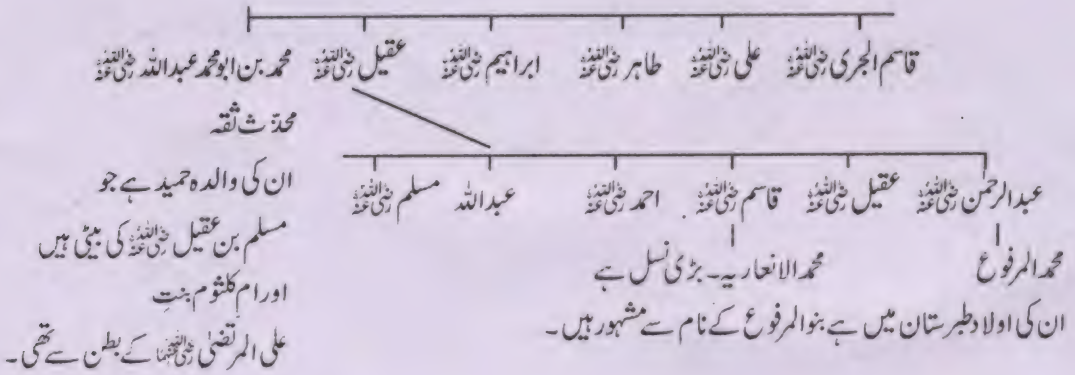 قاسم الجری رضی اللہ عنہ علی رضی اللہ عنہ طاہر رضی اللہ عنہ ابراہیم رضی اللہ عنہ عقیل رضی اللہ عنہ محمد بن ابو محمد عبداللہ رضی اللہ عنہ
محدّث ثقہ
ان کی والدہ حمید ہے جو
مسلم بن عقیل رضی اللہ عنہ کی بیٹی ہیں
اور ام کلثوم بنتِ
علی المرتضیٰ رضی اللہ عنہما کے بطن سے تھی۔
عبدالرحمن رضی اللہ عنہ عقیل رضی اللہ عنہ قاسم رضی اللہ عنہ احمد رضی اللہ عنہ عبداللہ مسلم رضی اللہ عنہ
محمد المرفوع محمد الانعاریہ۔ بڑی نسل ہے
ان کی اولاد طبرستان میں ہے بنو المرفوع کے نام سے مشہور ہیں۔